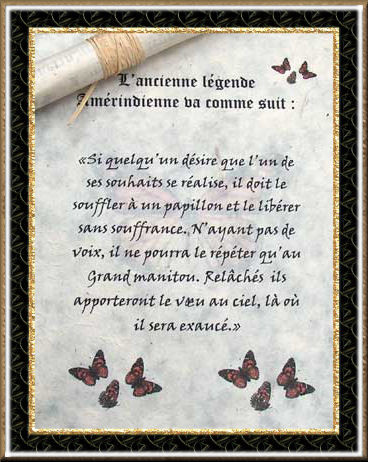 L'ancienne légende
Amérindienne va comme suit :
«Si quelqu'un désire que l'un de
ses souhaits se réalise, il doit le
souffler à un papillon et le libérer
sans souffrance. N'ayant pas de
voix, il ne pourra le répéter qu'au
Grand manitou. Relâchés ils
apporteront le vœu au ciel, là où
il sera exaucé.»